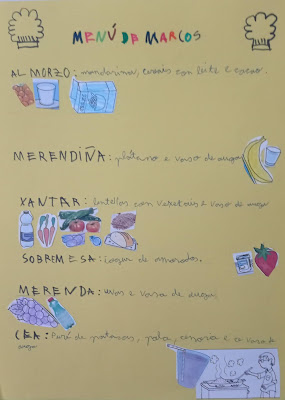 MENÚ DE MARCOS
ALMORZO: mandarina, cereais con leite e cacao.
MERENDIÑA: plátano e vaso de auga
XANTAR: lentellas con vexetais e vaso de auga
SOBREMESA: iogur de amorodos.
MERENDA: uvas e vaso de auga
CEA: Puré de patacas, polo, cenoria e o vaso de
auga